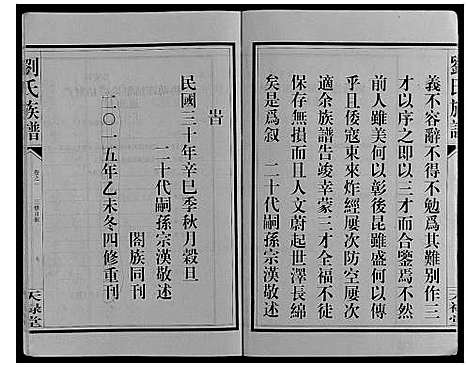 劉氏族譜
義不容辭不得不勉爲其難別作三
才以序之即以三才而合鑒焉不然
前人雖美何以彰後昆雖盛何以傳
乎且倭寇東來炸經屢次防空屢次
適余族譜告竣幸蒙三才全福不徒
保存無損而且人文蔚起世澤長綿
矣是爲叙　二十代嗣孫宗漢敬述
旹
民國三十年辛巳季秋月穀旦
二十代嗣孫宗漢敬述
二〇一五年乙未冬四修重刊
闔族同刊
劉氏族譜
天祿堂